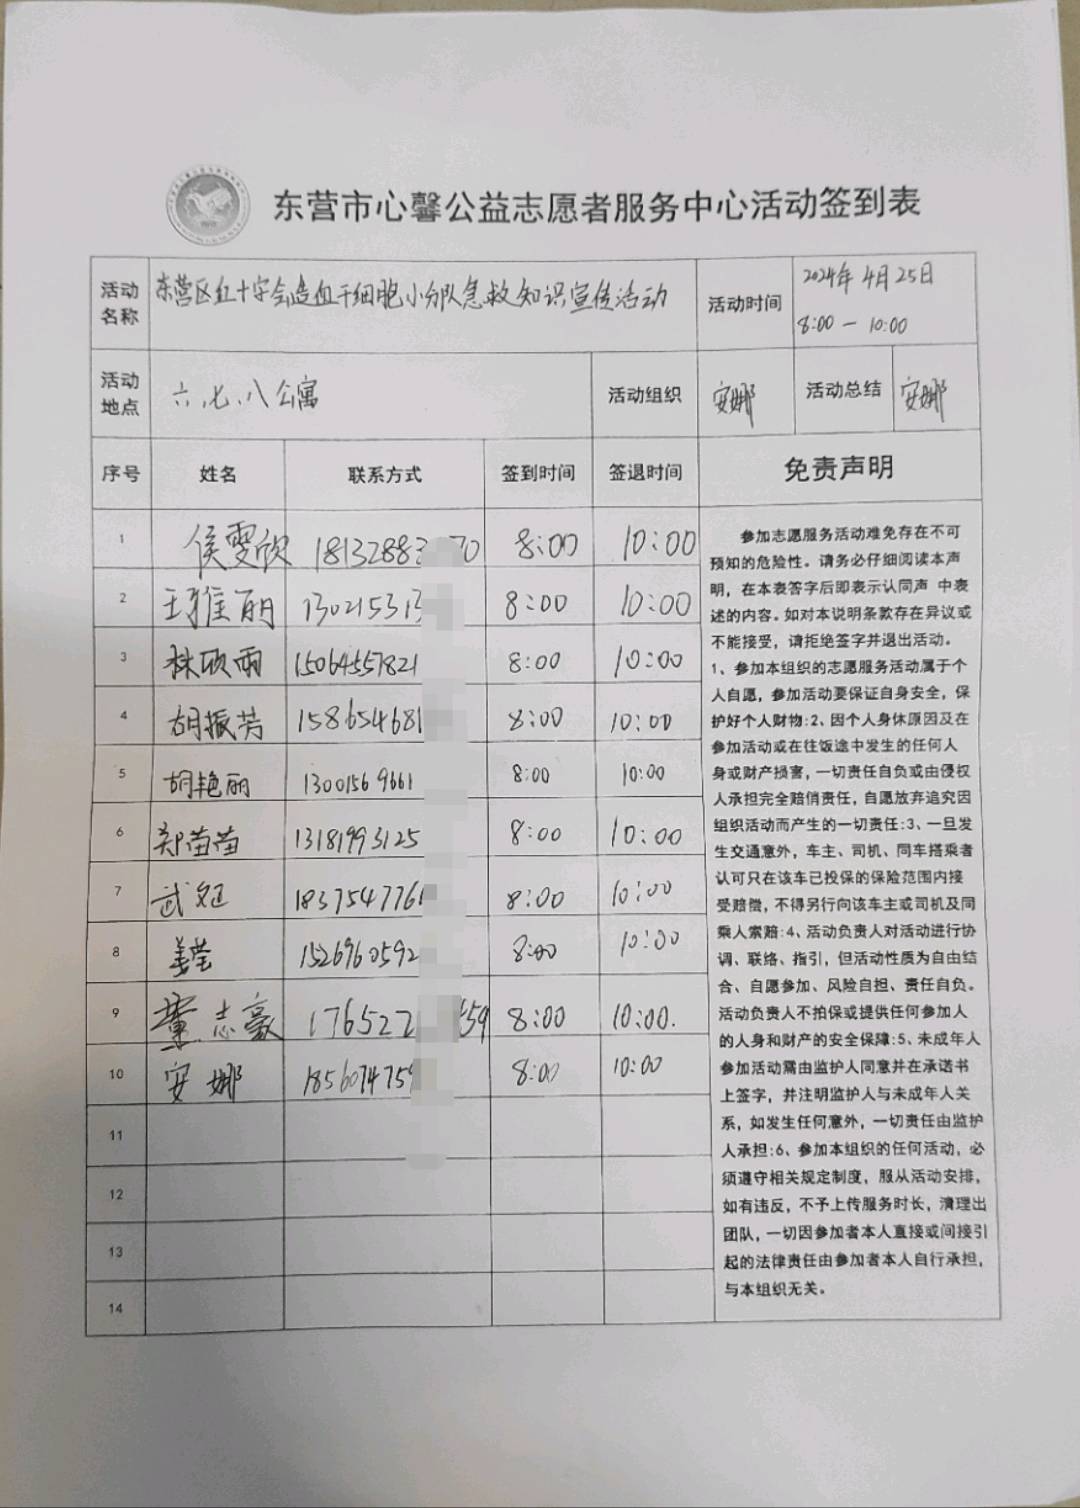 东营市心馨公益志愿者服务中心活动签到表
活动名称 东营区红十字会造血干细胞小分队急救知识宣传活动 活动时间 2024年4月25日 8:00-10:00
活动地点 六、七、八公寓 活动组织 安娜 活动总结 安娜
序号 姓名 联系方式 签到时间 签退时间 免责声明
1 侯雯欣 18132883 70 8:00 10:00
2 雅丽 130215313 8:00 10:00
3 林欣雨 15064557821 8:00 10:00
4 胡振芳 158654681 8:00 10:00
5 胡艳丽 13001569661 8:00 10:00
6 郑苗苗 13181993125 8:00 10:00
7 武 1837547761 8:00 10:00
8 姜莹 1526960592 8:00 10:00
9 董志豪 176522 59 8:00 10:00.
10 安娜 1856074759 8:00 10:00
11
12
13
14
参加志愿服务活动难免存在不可
预知的危险性。请务必仔细阅读本声
明，在本表答字后即表示认同声 中表
述的内容。如对本说明条款存在异议或
不能接受，请拒绝签字并退出活动。
1、参加本组织的志愿服务活动属于个
人自愿，参加活动要保证自身安全，保
护好个人财物:2、因个人身休原因及在
参加活动或在往饭途中发生的任何人
身或财产损害，一切责任自负或由侵权
人承担完全赔偿责任，自愿放弃追究因
组织活动而产生的一切责任:3、一旦发
生交通意外，车主、司机、同车搭乘者
认可只在该车已投保的保险范围内接
受赔偿，不得另行向该车主或司机及同
乘人索赔:4、活动负责人对活动进行协
调、联络、指引，但活动性质为自由结
合、自愿参加、风险自担、责任自负。
活动负责人不拍保或提供任何参加人
的人身和财产的安全保障:5、未成年人
参加活动需由监护人同意并在承诺书
上签字，并注明监护人与未成年人关
系，如发生任何意外，一切责任由监护
人承担:6、参加本组织的任何活动，必
须遵守相关规定制度，服从活动安排，
如有违反，不予上传服务时长，清理出
团队，一切因参加者本人直接或间接引
起的法律责任由参加者本人自行承担，
与本组织无关。